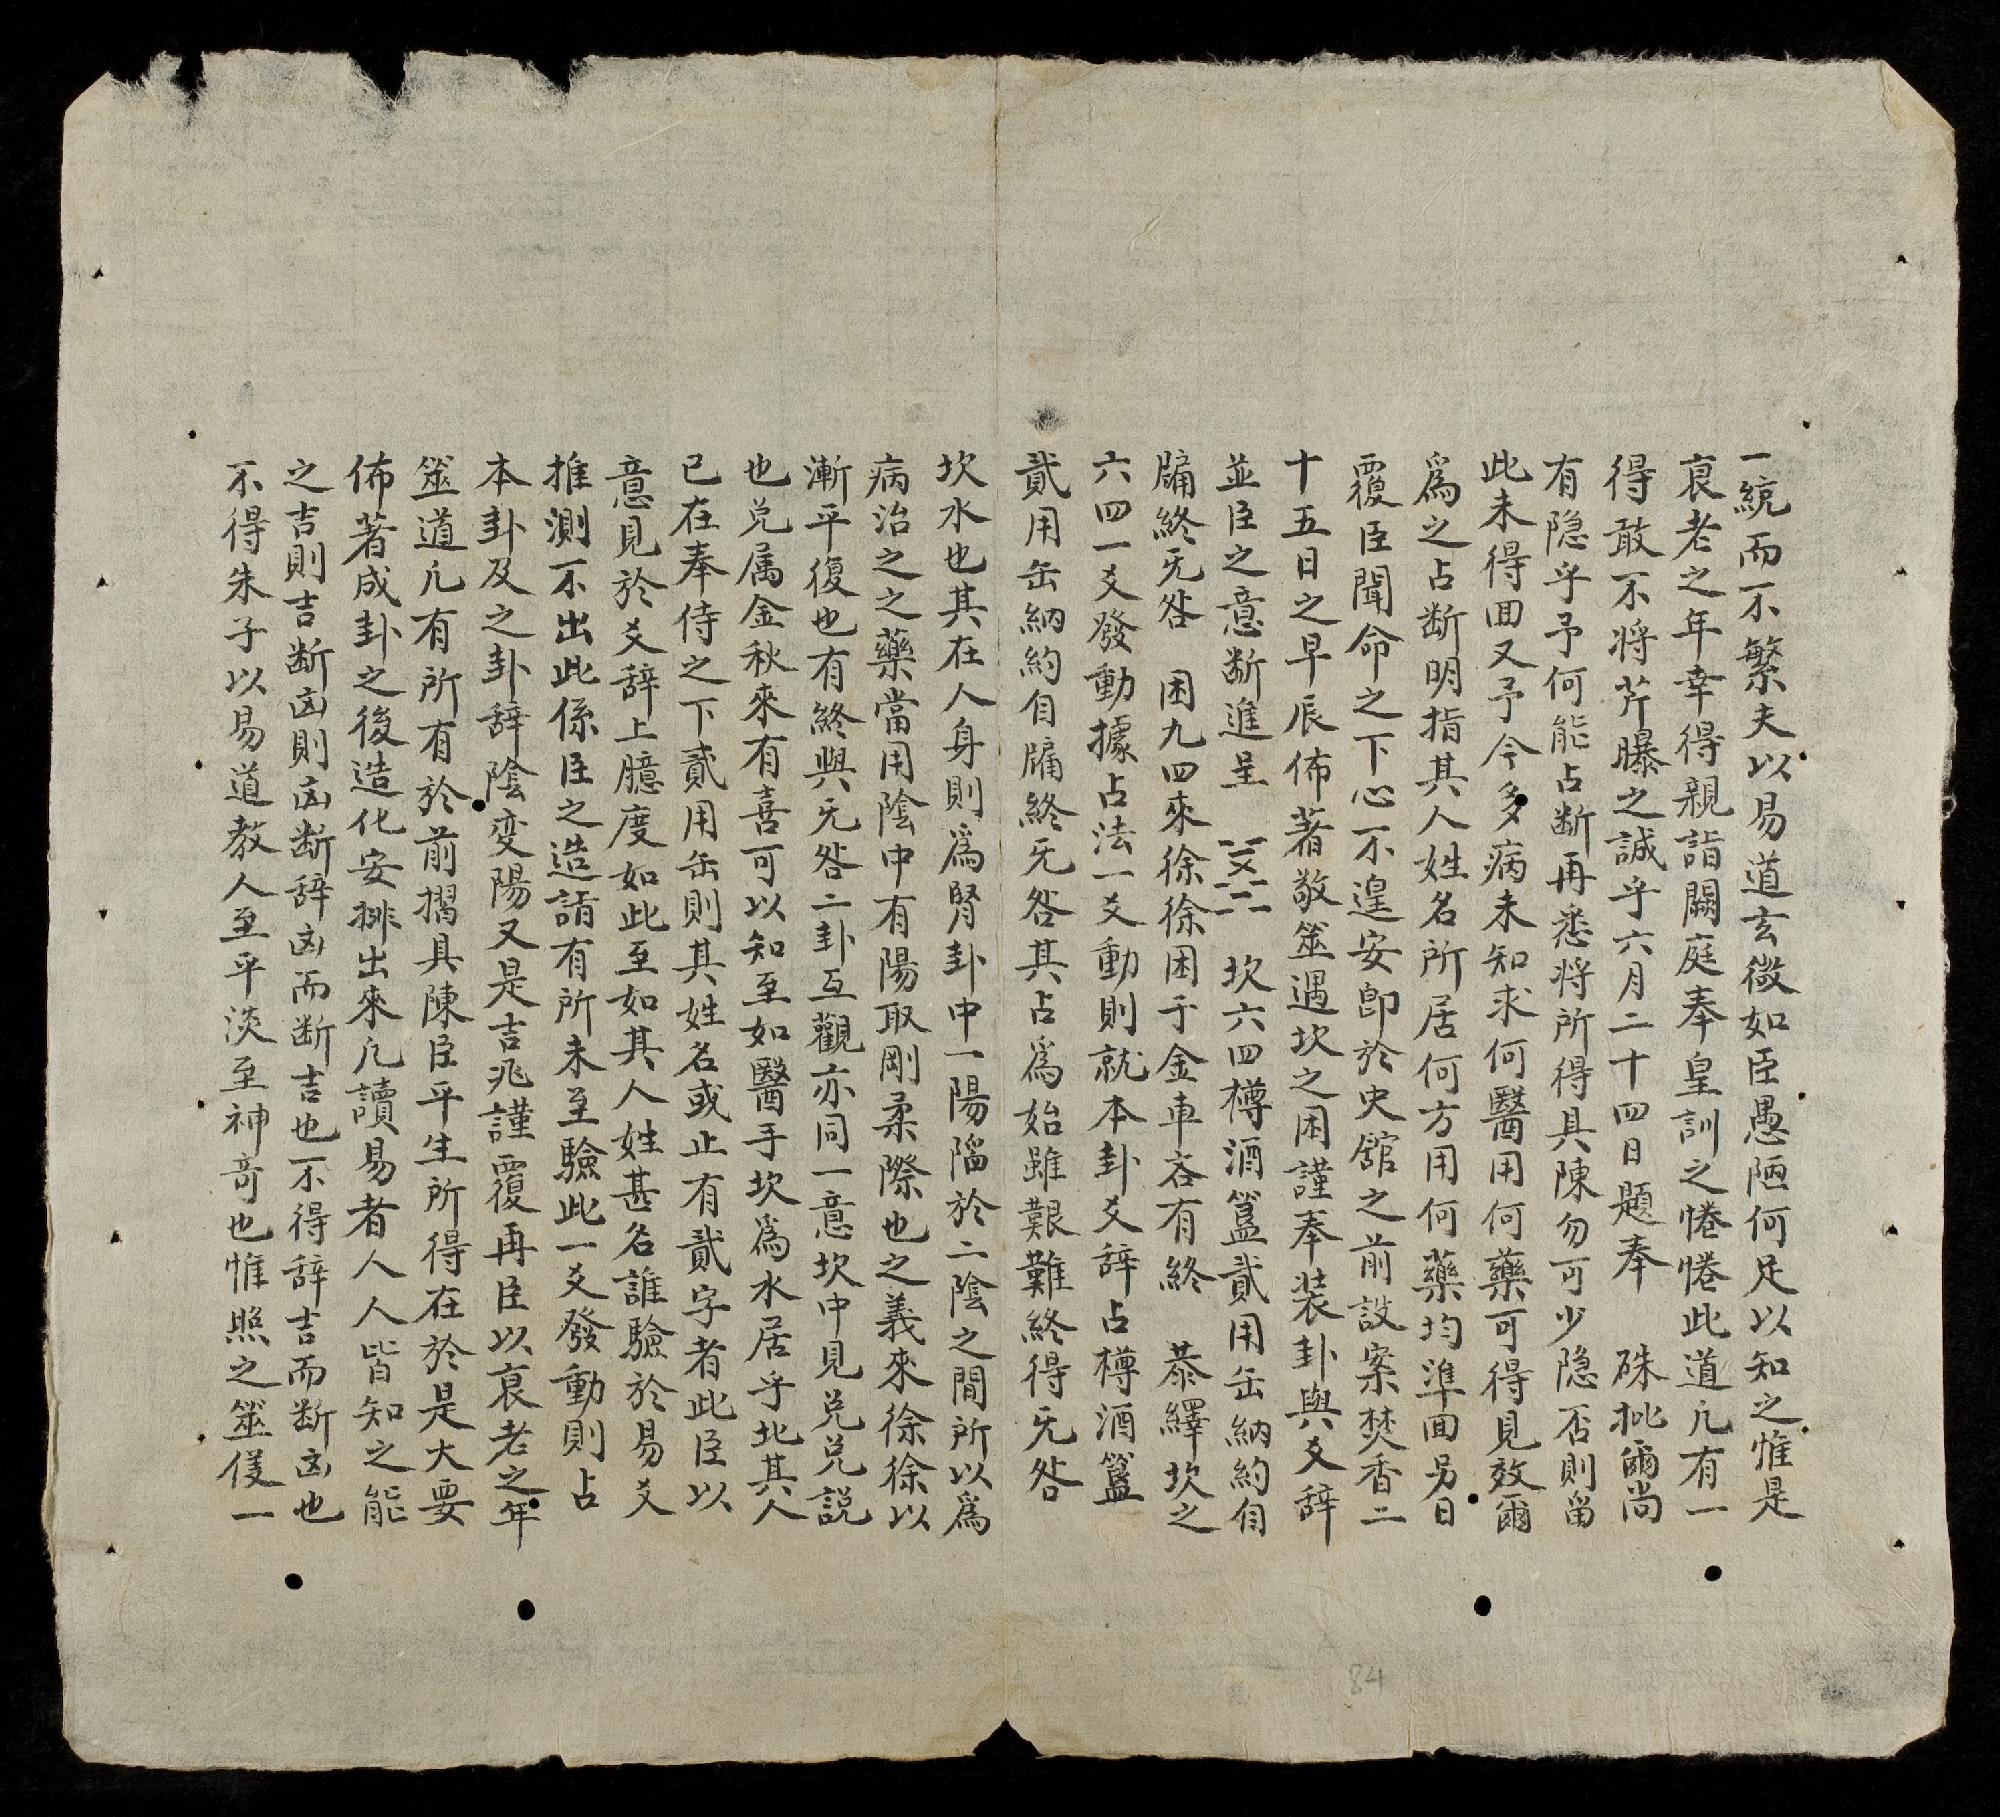 一統而不繁夫以易道玄微如臣愚陋何足以知之惟是
衰老之年幸得親詣闕庭奉皇訓之惓惓此道凡有一
得敢不将芹曝之誠乎六月二十四日題奉 硃批爾尚
有隐乎予何能占断再悉将所得具陳勿可少隐否則畄
此未得回又予今多病未知求何醫用何藥可得見效爾
爲之占断明指其人姓名所居何方用何藥均準回另日
覆臣聞命之下心不遑安卽於史舘之前設案焚香二
十五日之早辰佈蓍敬筮遇坎之困謹奉装卦與爻辞
並臣之意断進呈 坎六四樽酒簋貳用缶納約自
牖終旡咎 困九四來徐徐困于金車吝有終 恭繹坎之
六四一爻發動據占法一爻動則就本卦爻辞占樽酒簋
貳用缶納約自牖終旡咎其占爲始雖艱難終得旡咎
坎水也其在人身則爲腎卦中一陽陷於二陰之間所以爲
病治之之藥當用陰中有陽取剛柔際也之義來徐徐以
漸平復也有終與旡咎二卦互觀亦同一意坎中見兌兌説
也兌属金秋來有喜可以知至如醫手坎爲水居乎北其人
已在奉侍之下貳用缶則其姓名或止有貳字者此臣以
意見於爻辞上臆度如此至如其人姓甚名誰驗於易爻
推測不出此係臣之造詣有所未至驗此一爻發動則占
本卦及之卦辞陰变陽又是吉兆謹覆再臣以衰老之年
筮道凡有所有於前摺具陳臣平生所得在於是大要
佈蓍成卦之後造化安排出來凡讀易者人人皆知之能
之吉則吉断凶則凶断辞凶而断吉也不得辞吉而断凶也
不得朱子以易道教人至平淡至神竒也惟照之筮僅一
84